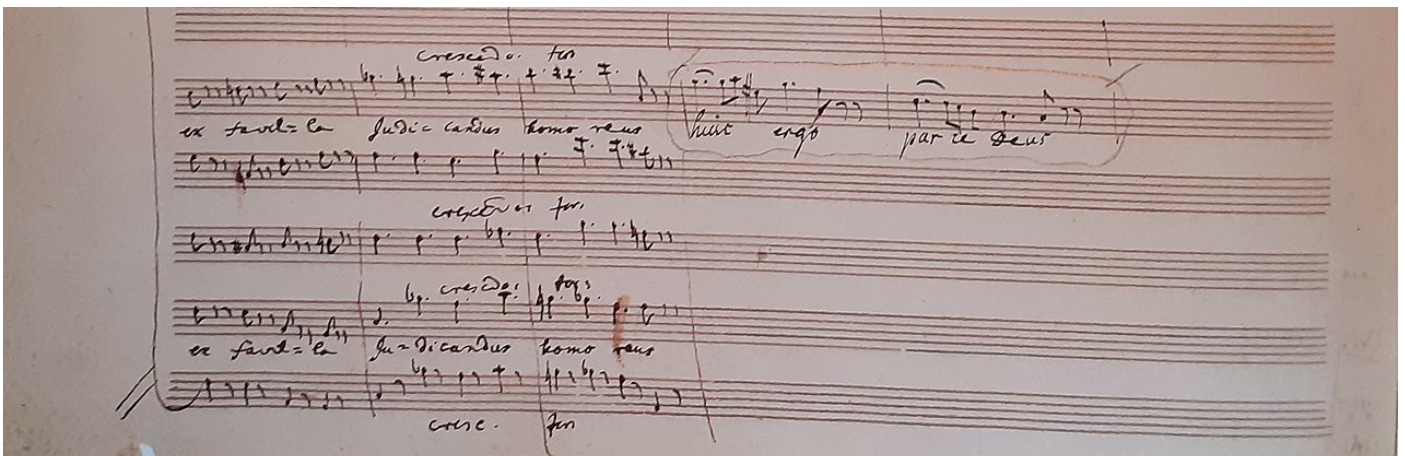 crescdo: for
ex favil=la Judi=candus homo reus huic ergo parce Deus
cresc for:
crescdo: for:
ex favil=la Ju=dicandus homo reus
cresc. for